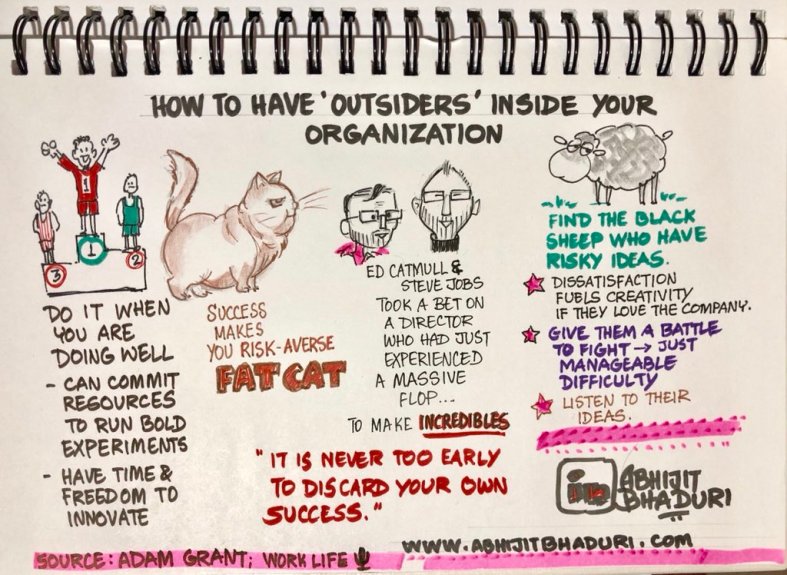 HOW TO HAVE 'OUTSIDERS' INSIDE YOUR
ORGANIZATION
1
1
2
3
DO IT WHEN
YOU ARE
DOING WELL
- CAN COMMIT
RESOURCES
TO RUN BOLD
EXPERIMENTS
- HAVE TIME &
FREEDOM TO
INNOVATE
SUCCESS
MAKES
YOU RISK-AVERSE
FAT CAT
ED CATMULL &
STEVE JOBS
TOOK A BET ON
A DIRECTOR
WHO HAD JUST
EXPERIENCED
A MASSIVE
FLOP...
TO MAKE INCREDIBLES
"IT IS NEVER TOO EARLY
TO DISCARD YOUR OWN
SUCCESS."
FIND THE BLACK
SHEEP WHO HAVE
RISKY IDEAS.
DISSATISFACTION
FUELS CREATIVITY
IF THEY LOVE THE COMPANY.
GIVE THEM A BATTLE
TO FIGHT → JUST
MANAGEABLE
DIFFICULTY
LISTEN TO THEIR
IDEAS.
ABHIJIT
BHADURI
WWW.ABHIJITBHADURI.COM
SOURCE: ADAM GRANT; WORK LIFE